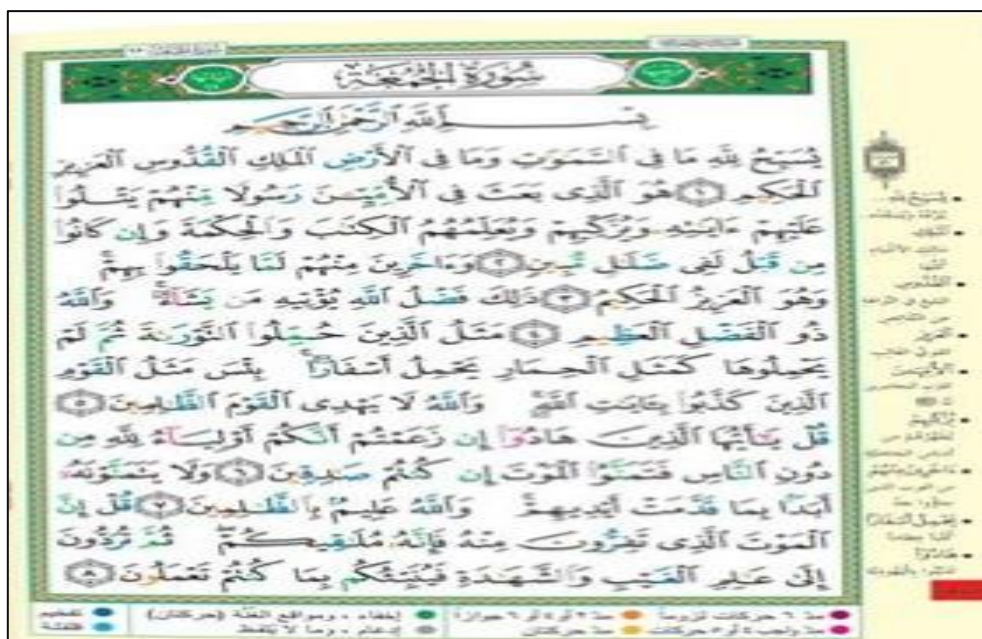 سُورَةُ الْجُمُعَةِ
بِسْمِ ٱللَّهِ ٱلرَّحْمَٰنِ ٱلرَّحِيمِ
يُسَبِّحُ لِلَّهِ مَا فِى ٱلسَّمَٰوَٰتِ وَمَا فِى ٱلْأَرْضِ ٱلْمَلِكِ ٱلْقُدُّوسِ ٱلْعَزِيزِ
ٱلْحَكِيمِ ١ هُوَ ٱلَّذِى بَعَثَ فِى ٱلْأُمِّيِّـۧنَ رَسُولًا مِّنْهُمْ يَتْلُوا۟
عَلَيْهِمْ ءَايَٰتِهِۦ وَيُزَكِّيهِمْ وَيُعَلِّمُهُمُ ٱلْكِتَٰبَ وَٱلْحِكْمَةَ وَإِن كَانُوا۟
مِن قَبْلُ لَفِى ضَلَٰلٍ مُّبِينٍ ٢ وَءَاخَرِينَ مِنْهُمْ لَمَّا يَلْحَقُوا۟ بِهِمْ ۚ
وَهُوَ ٱلْعَزِيزُ ٱلْحَكِيمُ ٣ ذَٰلِكَ فَضْلُ ٱللَّهِ يُؤْتِيهِ مَن يَشَآءُ ۚ وَٱللَّهُ
ذُو ٱلْفَضْلِ ٱلْعَظِيمِ ٤ مَثَلُ ٱلَّذِينَ حُمِّلُوا۟ ٱلتَّوْرَىٰةَ ثُمَّ لَمْ
يَحْمِلُوهَا كَمَثَلِ ٱلْحِمَارِ يَحْمِلُ أَسْفَارًۢا ۚ بِئْسَ مَثَلُ ٱلْقَوْمِ
ٱلَّذِينَ كَذَّبُوا۟ بِـَٔايَٰتِ ٱللَّهِ ۚ وَٱللَّهُ لَا يَهْدِى ٱلْقَوْمَ ٱلظَّٰلِمِينَ ٥
قُلْ يَٰٓأَيُّهَا ٱلَّذِينَ هَادُوٓا۟ إِن زَعَمْتُمْ أَنَّكُمْ أَوْلِيَآءُ لِلَّهِ مِن
دُونِ ٱلنَّاسِ فَتَمَنَّوُا۟ ٱلْمَوْتَ إِن كُنتُمْ صَٰدِقِينَ ٦ وَلَا يَتَمَنَّوْنَهُۥٓ
أَبَدًۢا بِمَا قَدَّمَتْ أَيْدِيهِمْ ۚ وَٱللَّهُ عَلِيمٌۢ بِٱلظَّٰلِمِينَ ٧ قُلْ إِنَّ
ٱلْمَوْتَ ٱلَّذِى تَفِرُّونَ مِنْهُ فَإِنَّهُۥ مُلَٰقِيكُمْ ۖ ثُمَّ تُرَدُّونَ
إِلَىٰ عَٰلِمِ ٱلْغَيْبِ وَٱلشَّهَٰدَةِ فَيُنَبِّئُكُم بِمَا كُنتُمْ تَعْمَلُونَ ٨
يُسَبِّحُ لِلَّهِ
الْعَزِيزُ
يُزَكِّيهِمْ
يَحْمِلُ أَسْفَارًا
هَادُوا
مدّ ٦ حركات لزوماً مدّ ٢ أو ٤ أو ٦ جوازاً إخفاء، ومواقع الغنّة (حركتان) تفخيم
مدّ واجب ٤ أو ٥ حركات مدّ حركتان إدغام، وما لا يُلفظ قلقلة